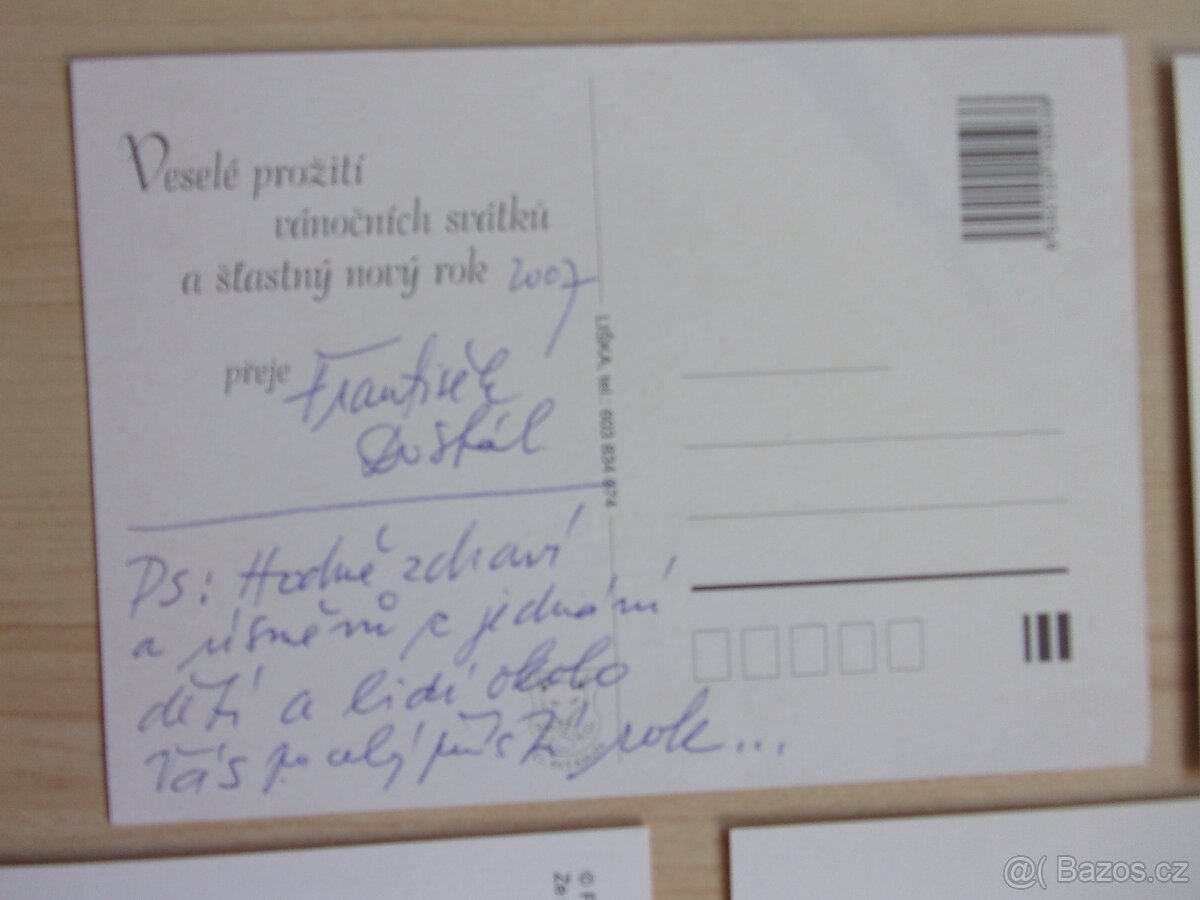 Veselé prožití
vánočních svátků
a šťastný nový rok 2007
přeje František
Dostál
LIŠKA, tel.: 603 834 974
PS: Hodně zdraví
a úsměvů z jednání
dětí a lidí okolo
Vás po celý příští rok...
© F
Ze
@( Bazos.cz